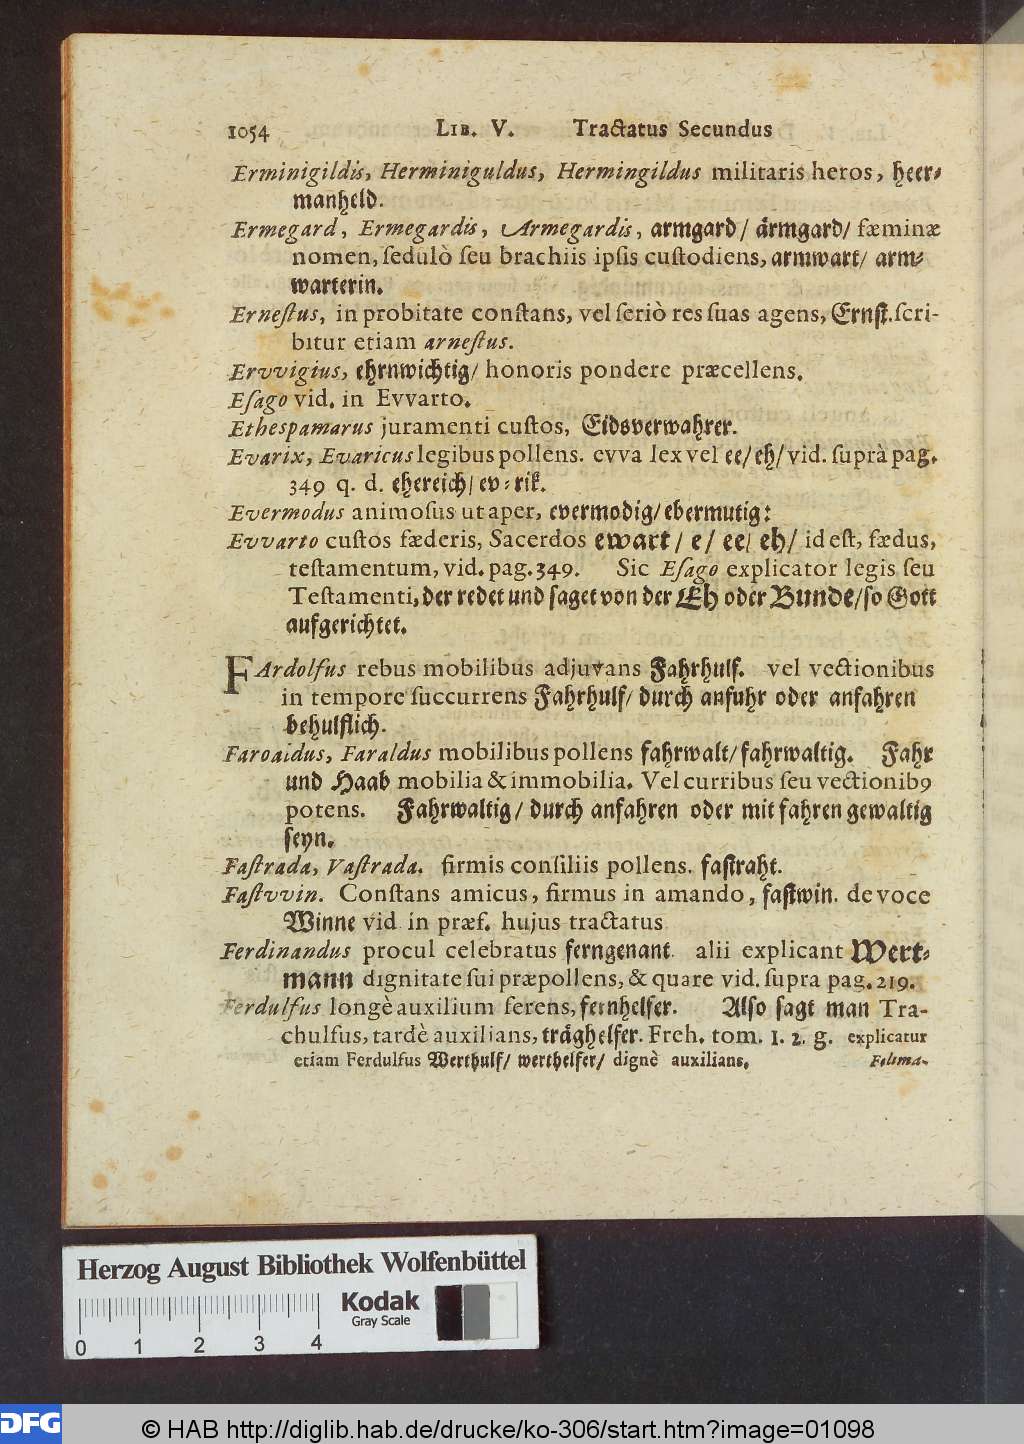 1054 LIB. V. Tractatus Secundus
Erminigildis, Herminiguldus, Hermingildus militaris heros, heer⸗
manheld.
Ermegard, Ermegardis, Armegardis, armgard/ ärmgard/ fæminæ
nomen, ſedulò ſeu brachiis ipſis cuſtodiens, armwart/ arm⸗
warterin.
Erneſtus, in probitate conſtans, vel ſeriò res ſuas agens, Ernſt. ſcri-
bitur etiam arneſtus.
Ervvigius, ehrnwichtig/ honoris pondere præcellens.
Eſago vid. in Evvarto.
Ethespamarus juramenti cuſtos, Eidsverwahrer.
Evarix, Evaricus legibus pollens. evva lex vel ee/ eh/ vid. ſuprà pag.
349 q. d. ehereich/ ev⸗rik.
Evermodus animoſus ut aper, evermodig/ ebermutig:
Evvarto cuſtos fæderis, Sacerdos ewart/ e/ ee/ eh/ id eſt, fædus,
teſtamentum, vid. pag. 349. Sic Eſago explicator legis ſeu
Teſtamenti, der redet und ſaget von der Eh oder Bunde/ ſo Gott
aufgerichtet.
FArdolfus rebus mobilibus adjuvans Fahrhulf. vel vectionibus
in tempore ſuccurrens Fahrhulf/ durch anfuhr oder anfahren
behulflich.
Faroaldus, Faraldus mobilibus pollens fahrwalt/ fahrwaltig. Fahr
und Haab mobilia & immobilia. Vel curribus ſeu vectionib9
potens. Fahrwaltig/ durch anfahren oder mit fahren gewaltig
ſeyn.
Faſtrada, Vaſtrada. firmis conſiliis pollens. faſtraht.
Faſtvvin. Conſtans amicus, firmus in amando, faſtwin. de voce
Winne vid in præf. hujus tractatus
Ferdinandus procul celebratus ferngenant. alii explicant Wert⸗
mann dignitate ſui præpollens, & quare vid. ſupra pag. 219.
Ferdulfus longè auxilium ferens, fernhelfer. Alſo ſagt man Tra-
chulfus, tardè auxilians, träghelfer. Freh. tom. 1. 2. g. explicatur
etiam Ferdulfus Werthulf/ werthelfer/ dignè auxilians.
Herzog August Bibliothek Wolfenbüttel
Kodak
Gray Scale
0 1 2 3 4
DFG
© HAB http://diglib.hab.de/drucke/ko-306/start.htm?image=01098